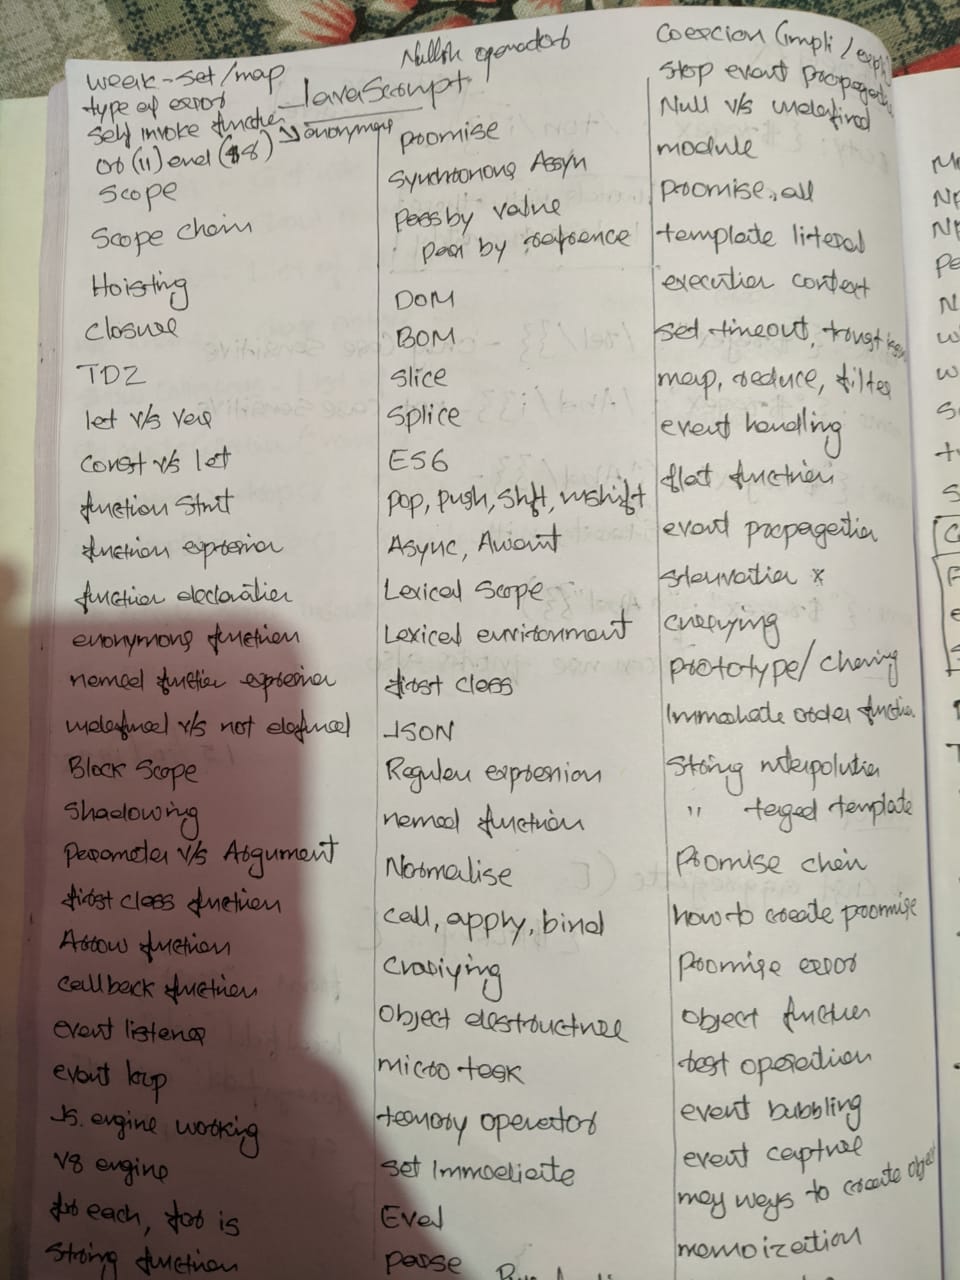 Nullish operator
Coercion (impli / expli
weak-set/map
JavaScript
stop event propagat
type of error
Null v/s undefined
self invoke function → anonymous
or (||) and (&&)
Scope
Scope chain
Hoisting
closure
TDZ
let v/s var
const v/s let
function stmt
function expression
function declaration
anonymous function
named function expression
undefined v/s not defined
Block Scope
Shadowing
Parameter v/s Argument
first class function
Arrow function
callback function
event listener
event loop
JS. engine working
V8 engine
for each, for is
string function
promise
Synchronous Assyn
Pass by value
Pass by reference
DOM
BOM
Slice
Splice
ES6
pop, push, shft, unshift
Async, Await
Lexical Scope
Lexical environment
first class
JSON
Regular expression
named function
Normalise
call, apply, bind
Object destructure
micro task
ternary operator
set Immediate
Eval
parse
module
promise.all
template literal
execution context
set timeout,
map, reduce, filter
event handling
flat function
event propagation
starvation *
currying
prototype/ chaining
order function
String interpolation
" taged template
Promise chain
how to create promise
promise error
object function
operation
event bubbling
event capture
may ways to create obje
memoization